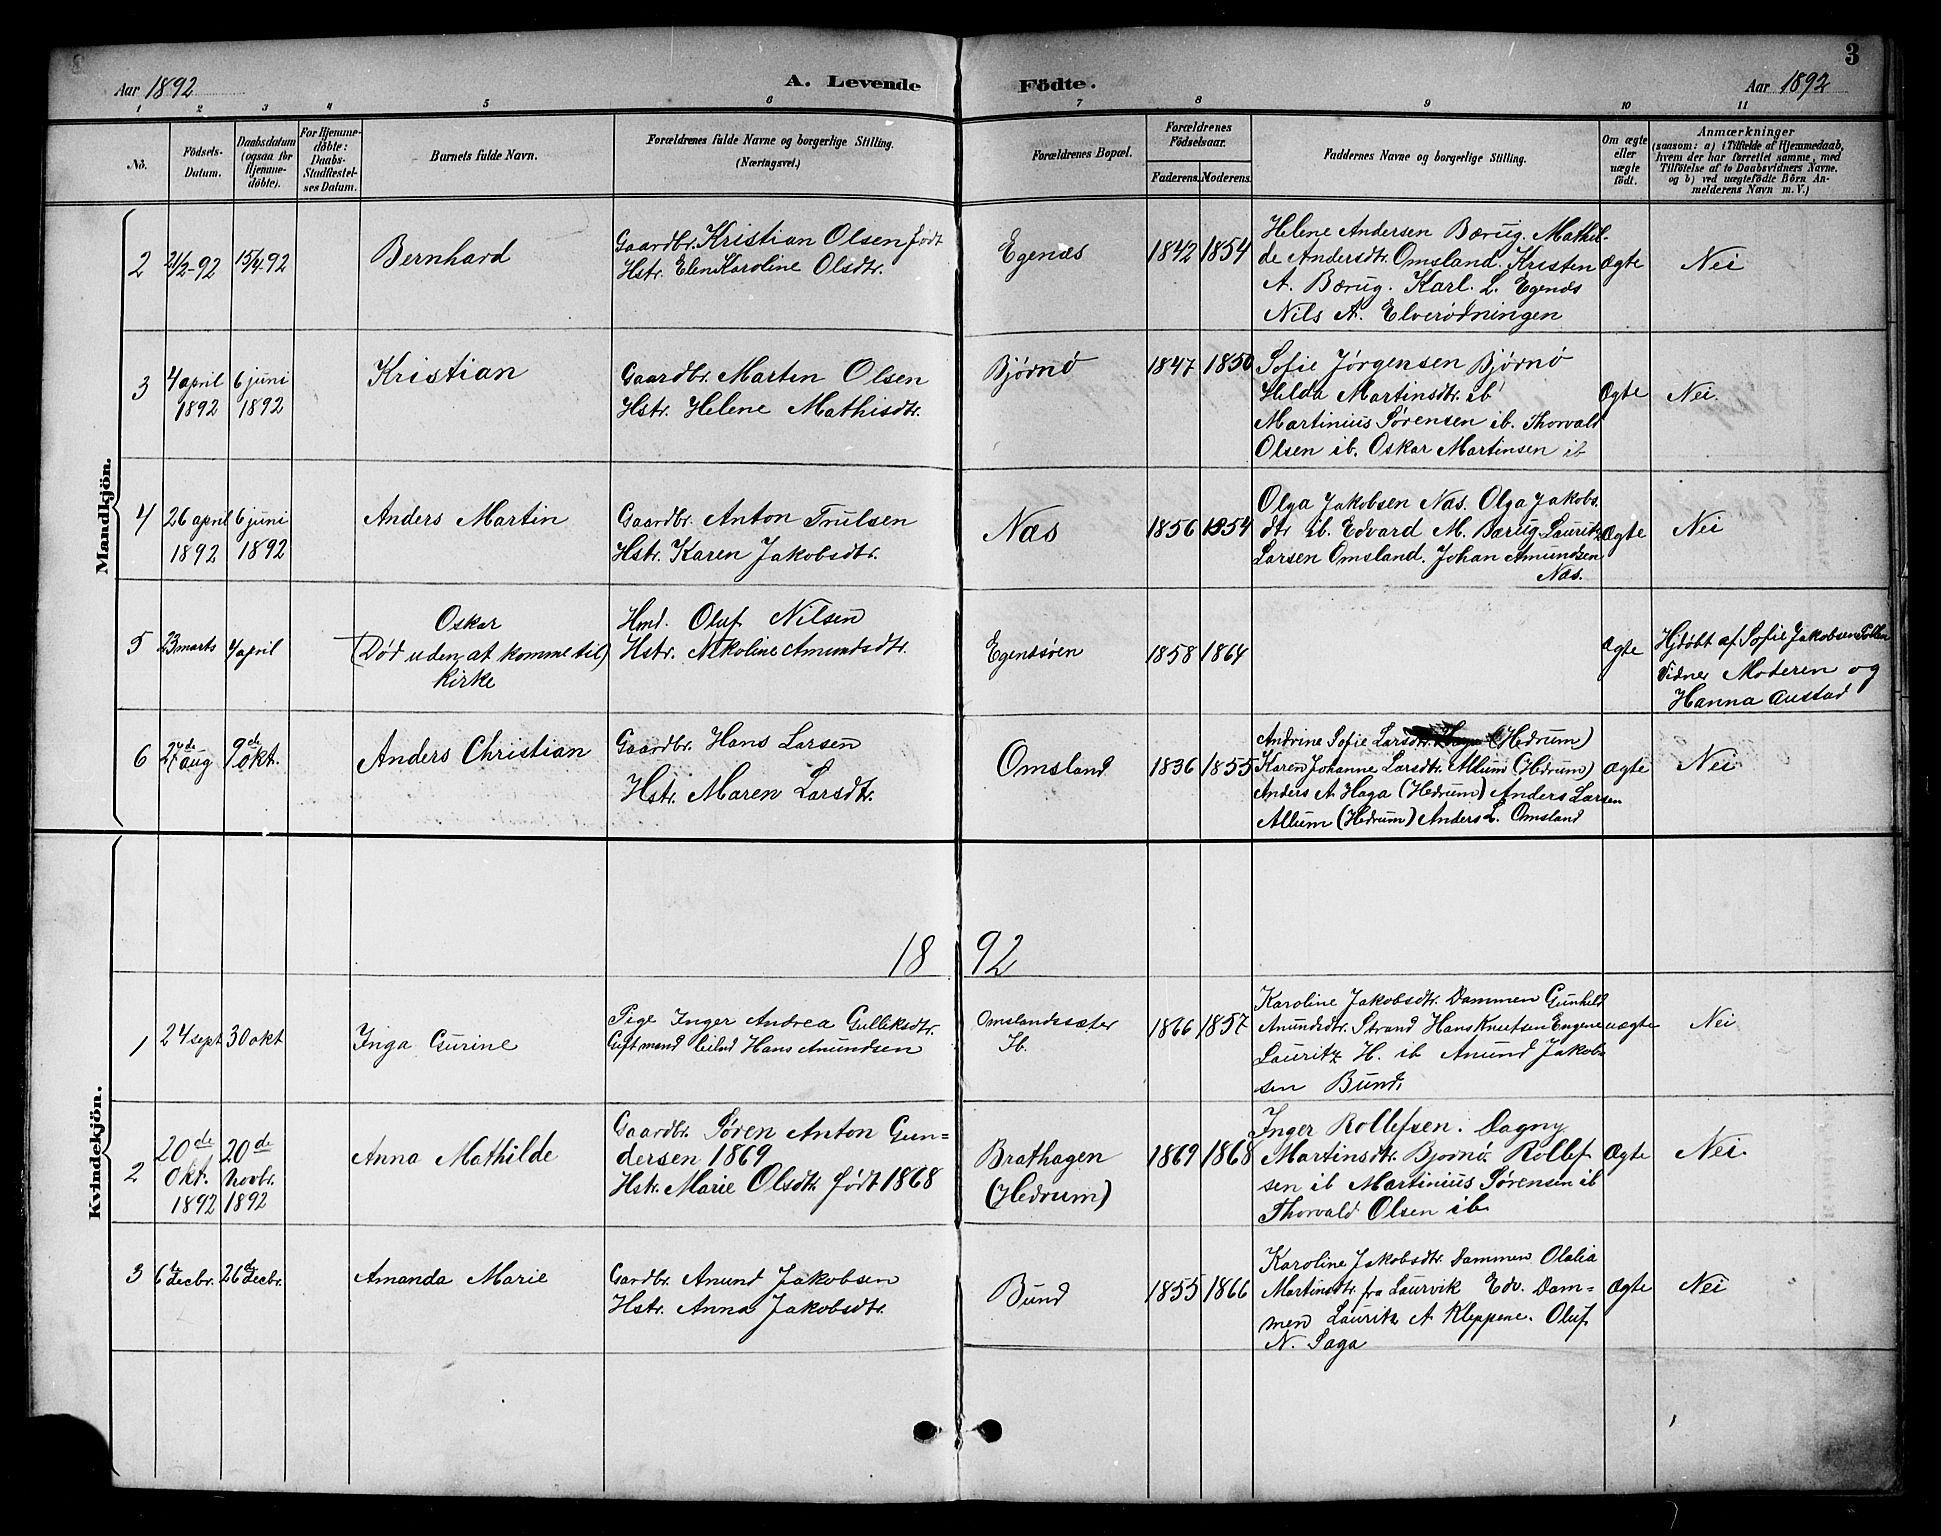 3
Aar 1892
A. Levende Födte.
Aar 1892
1 2 3 4 5 6 7 8 9 10 11
No.
Födsels-
Datum.
Daabsdatum
(ogsaa for
Hjemme-
döbte).
For Hjemme-
döbte:
Daabs-
Stadfæstel-
ses Datum.
Barnets fulde Navn.
Forældrenes fulde Navne og borgerlige Stilling.
(Næringsvei.)
Forældrenes Bopæl.
Forældrenes
Födselsaar.
Faderens. Moderens.
Faddernes Navne og borgerlige Stilling.
Om ægte
eller
uægte
födt.
Anmærkninger
(saasom: a) i Tilfælde af Hjemmedaab,
hvem der har forrettet samme, med
Tilföielse af to Daabsvidners Navne.
og b) ved uægtefödte Börn An-
melderens Navn m. V.)
Mandkjön.
2
21/2-92
15/4-92
Bernhard
Gaardbr. Kristian Olsen født
Hstr. Elen Karoline Olsdtr.
Egenæs
1842 1854
Helene Andersen Bærug. Mathil-
de Andersdtr. Omsland. Kristen
A. Bærug. Karl. L. Egenæs
Nils A. Elverødningen
Ægte
Nei
3
4 april
1892
6 juni
1892
Kristian
Gaardbr. Marten Olsen
Hstr. Helene Mathisdtr.
Bjørnø
1847 1850
Sofie Jørgensen Bjørnø
Helda Martinsdtr. ib
Martinius Sørensen ib. Thorvald
Olsen ib. Oskar Martinsen ib
Ægte
Nei.
4
26 april
1892
6 juni
1892
Anders Martin
Gaardbr. Anton Trulsen
Hstr. Karen Jakobsdtr.
Næs
1856 1854
Olga Jakobsen Næs. Olga Jakobs.
dtr ib. Edvard M. Bærug. Lauritz
Larsen Omsland. Johan Amundsen
Næs.
Ægte
Nei
5
23 marts
4 april
Oskar
(Død uden at komme til)
Kirke
Hmd. Oluf Nilsen
Hstr. Nikoline Amundsdtr.
1858 1864
Ægte
Hjdøbt af Sofie Jakobsen
Vidner Moderen og
Hanna Austad
6
27de aug
9de okt.
Anders Christian
Gaardbr. Hans Larsen
Hstr. Maren Larsdtr.
Omsland
1836 1855
Andrine Sofie Larsdtr. (Hedrum)
Karen Johanne Larsdtr. Allum (Hedrum)
Anders A Haga (Hedrum) Anders Larsen
Allum (Hedrum) Anders L. Omsland
Ægte
Nei
1892
Kvindekjön.
1
24 sept
30 okt
Inga Gurine
Pige Inger Andrea Gulliksdtr.
Gift mand Hans Amundsen
Omslandssæter
Ib.
1866 1857
Karoline Jakobsdtr. Dammen Gunhild
Anundsdtr. Strand Hans Knutsen Engene
Lauritz H. ib Anund Jakob-
sen Bund.
uægte
Nei
2
20de
Okt.
1892
20de
Novbr.
1892
Anna Mathilde
Gaardbr. Søren Anton Gun-
dersen 1869
Hstr. Marie Olsdtr. født 1868
Brathagen
(Hedrum)
1869 1868
Inger Rollefsen. Dagny
Martinsdtr. Bjørnø. Rollef-
sen ib Martinius Sørensen ib
Thorvald Olsen ib.
Ægte
Nei.
3
6 decbr.
26 decbr.
Amanda Marie
Gardbr. Anund Jakobsen
Hstr. Anna Jakobsdtr.
Bund
1855 1866
Karoline Jakobsdtr. Dammen Olalia
Martinsdtr. fra Laurvik Edv. Dam-
men Lauritz A Kleppene. Oluf
N. Saga
Ægte
Nei